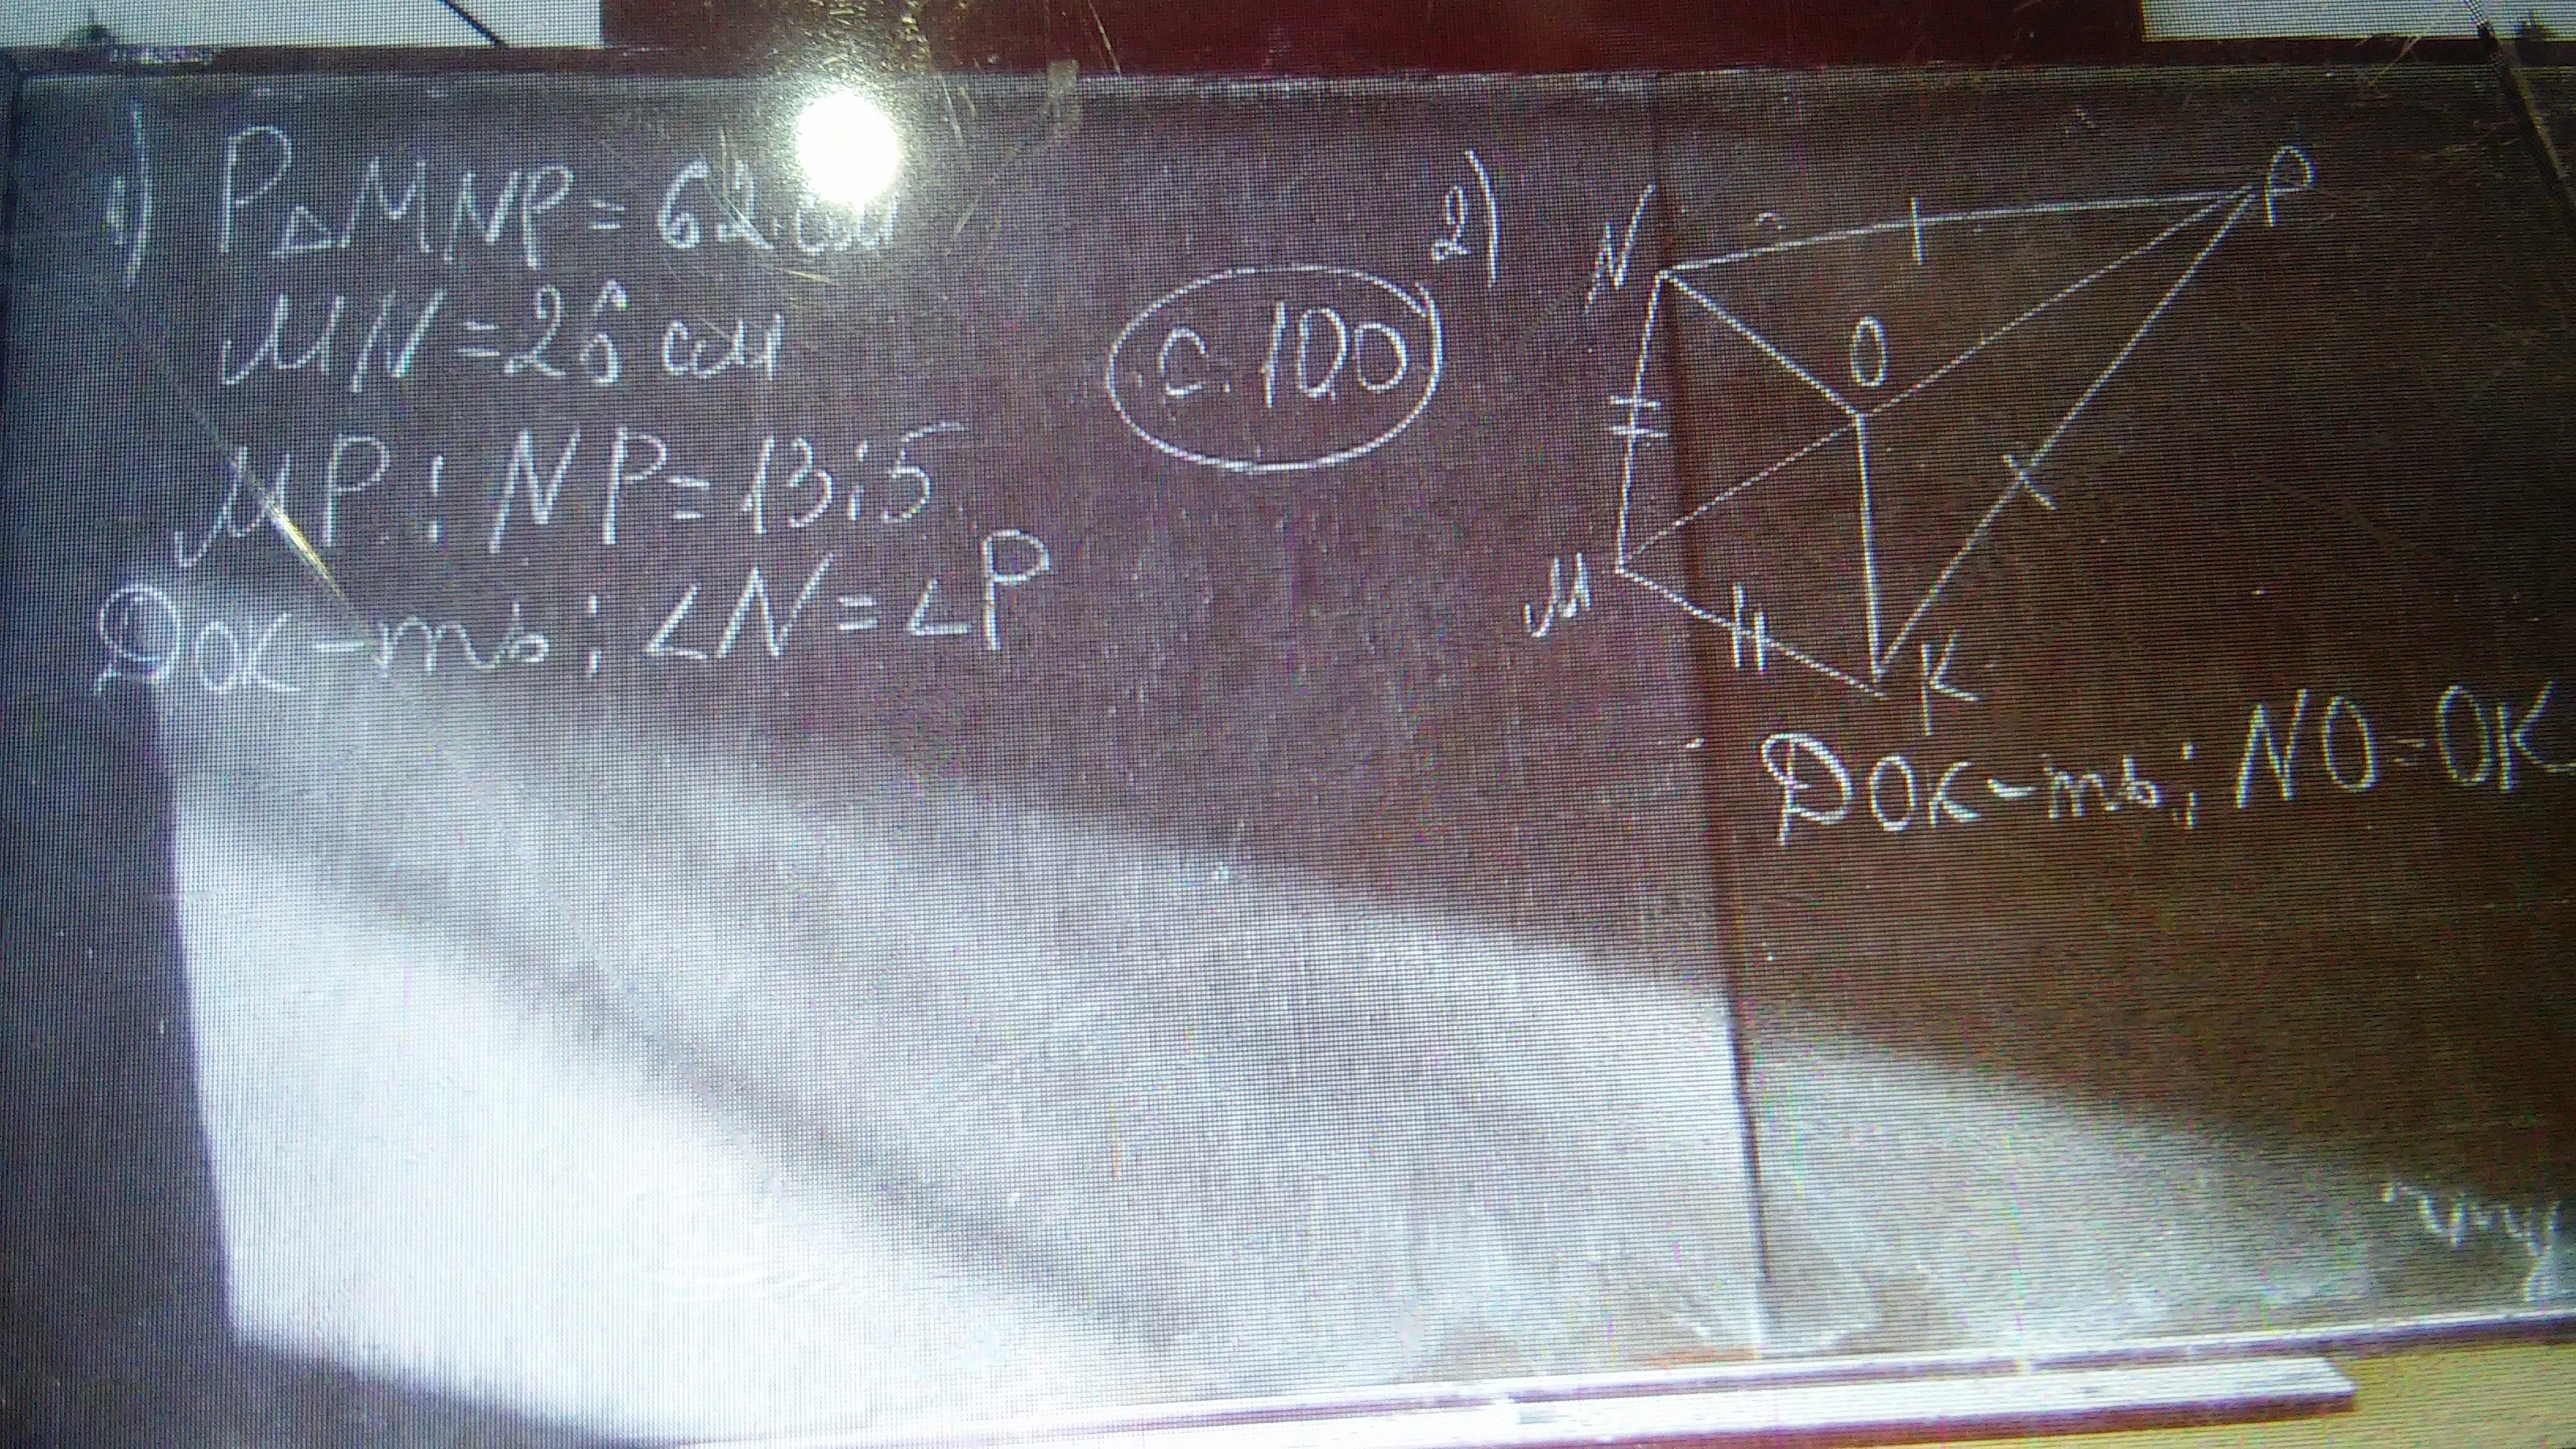 1) P△MNP = 62 см
MN = 26 см
MP : NP = 13:5
Док-ть: ∠N = ∠P
с. 100
2)
N
P
O
M
K
Док-ть: NO = OK